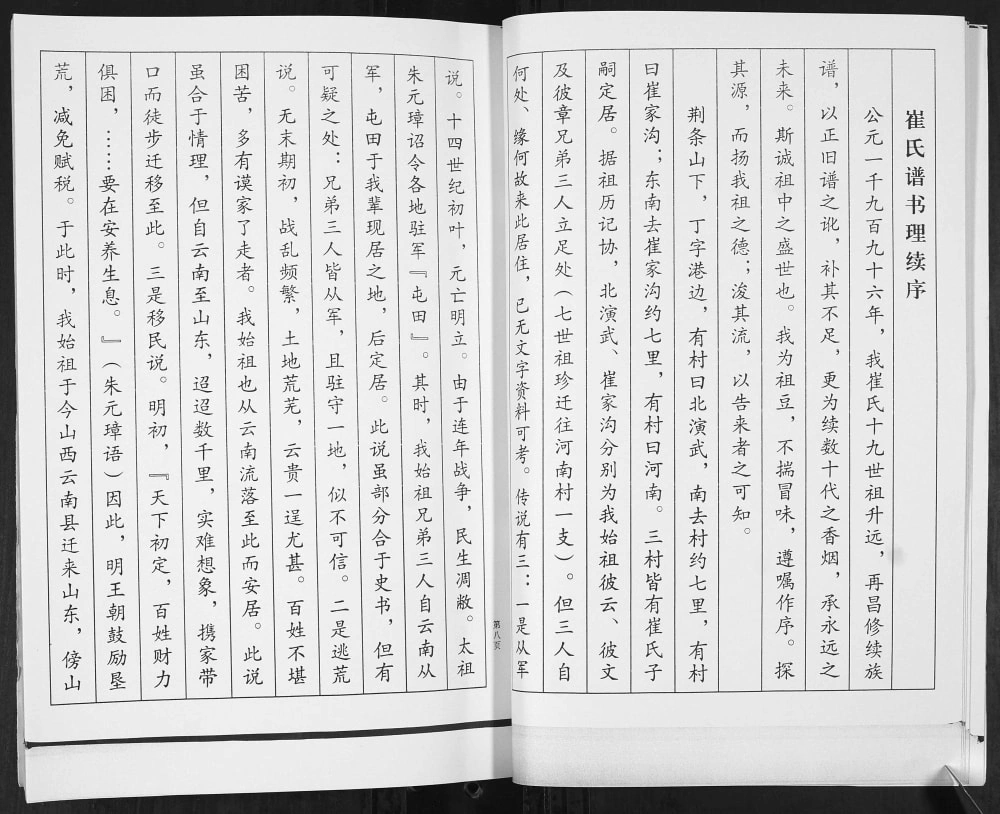 崔氏谱书理续序
公元一千九百九十六年，我崔氏十九世祖升远，再昌修续族
谱，以正旧谱之讹，补其不足，更为续数十代之香烟，承永远之
未来。斯诚祖中之盛世也。我为祖豆，不揣冒味，遵嘱作序。探
其源，而扬我祖之德；浚其流，以告来者之可知。
荆条山下，丁字港边，有村曰北演武，南去村约七里，有村
曰崔家沟；东南去崔家沟约七里，有村曰河南。三村皆有崔氏子
嗣定居。据祖历记协，北演武、崔家沟分别为我始祖彼云、彼文
及彼章兄弟三人立足处（七世祖珍迁往河南村一支）。但三人自
何处、缘何故来此居住，已无文字资料可考。传说有三：一是从军
第八页
说。十四世纪初叶，元亡明立。由于连年战争，民生凋敝。太祖
朱元璋诏令各地驻军『屯田』。其时，我始祖兄弟三人自云南从
军，屯田于我辈现居之地，后定居。此说虽部分合于史书，但有
可疑之处：兄弟三人皆从军，且驻守一地，似不可信。二是逃荒
说。无末期初，战乱频繁，土地荒芜，云贵一逞尤甚。百姓不堪
困苦，多有谟家了走者。我始祖也从云南流落至此而安居。此说
虽合于情理，但自云南至山东，迢迢数千里，实难想象，携家带
口而徒步迁移至此。三是移民说。明初，『天下初定，百姓财力
俱困，……要在安养生息。』（朱元璋语）因此，明王朝鼓励垦
荒，减免赋税。于此时，我始祖于今山西云南县迁来山东，傍山